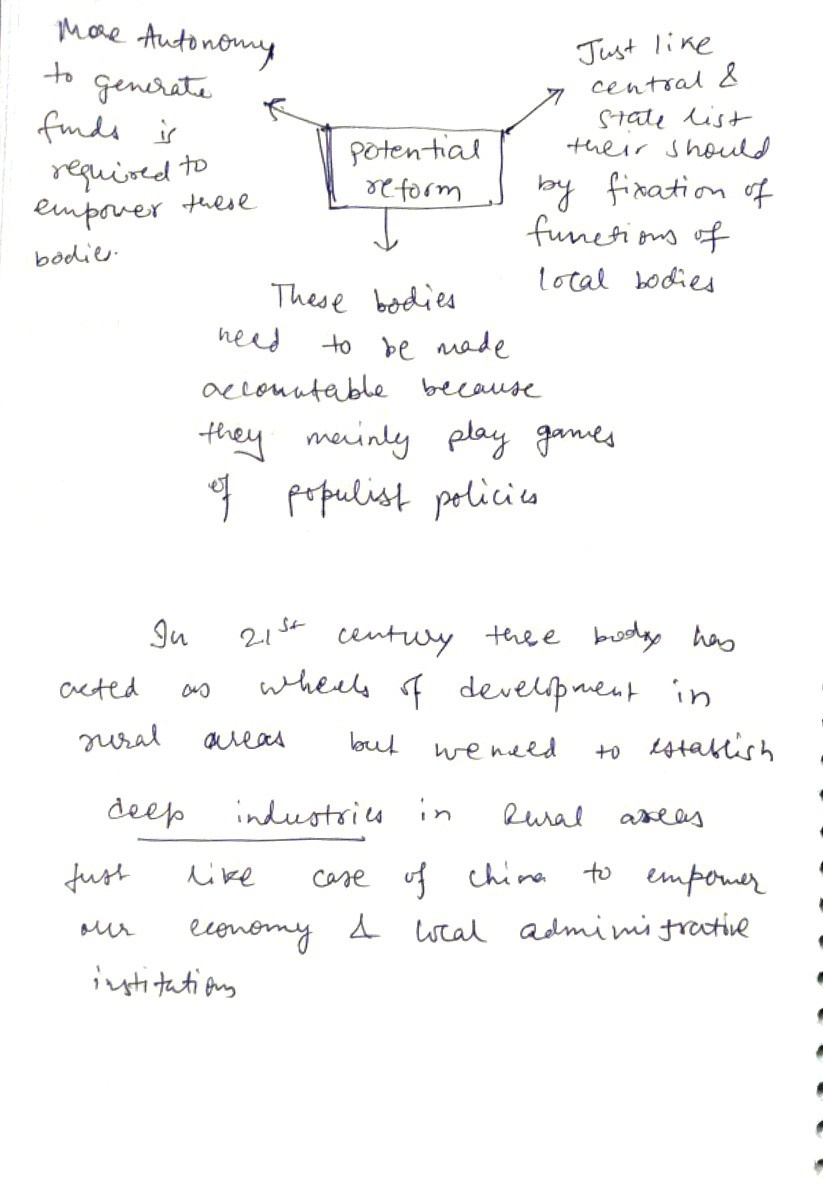 More Autonomy
to generate
funds is
required to
empower these
bodies.
potential
reform
Just like
central &
state list
their should
by fixation of
functions of
local bodies
These bodies
need to be made
accountable because
they mainly play games
of populist policies
In 21st century these body has
acted as wheels of development in
rural areas but we need to establish
deep industries in Rural areas
Just like case of china to empower
our economy & local administrative
institutions